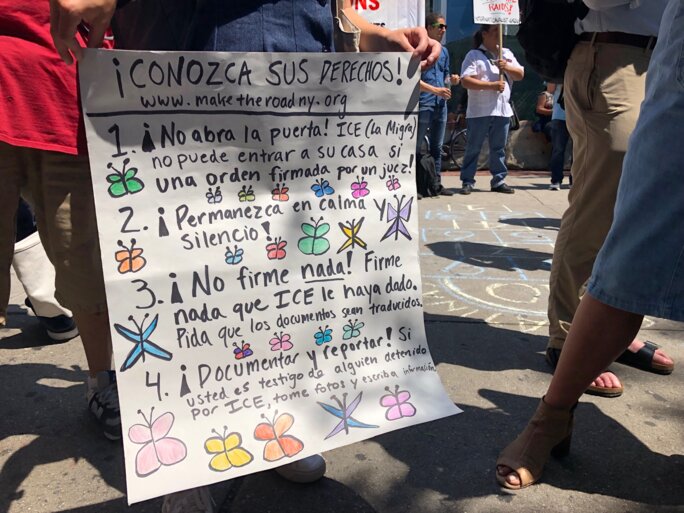 ¡CONOZCA SUS DERECHOS!
www.maketheroadny.org
1. ¡No abra la puerta! ICE (La Migra)
no puede entrar a su casa si
una orden firmada por un juez!
2. ¡Permanezca en calma y
silencio!
3. ¡No firme nada! Firme
nada que ICE le haya dado.
Pida que los documentos sean traducidos.
4. ¡Documentar y reportar! Si
usted es testigo de alguien detenido
por ICE, tome fotos y escriba información.
NS
RAIDS!